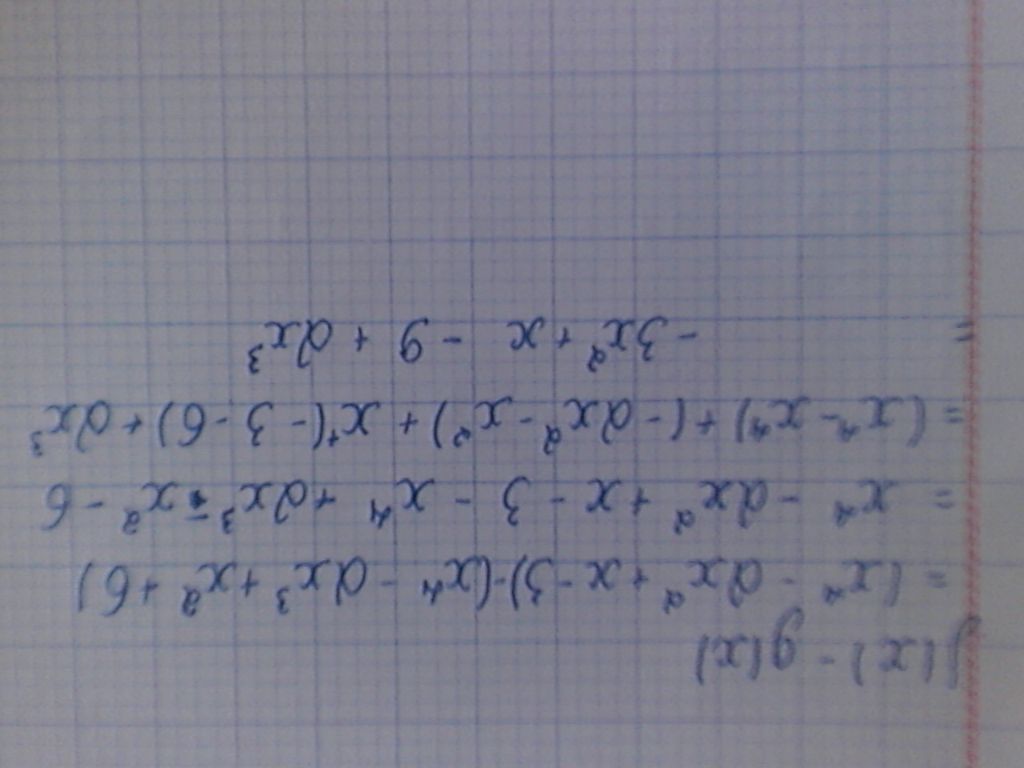 f(x) - g(x)
= (x⁴ - 2x² + x - 3) - (x⁴ - 2x³ + x² + 6)
= x⁴ - 2x² + x - 3 - x⁴ + 2x³ - x² - 6
= (x⁴ - x⁴) + (- 2x² - x²) + x + (- 3 - 6) + 2x³
= - 3x² + x - 9 + 2x³